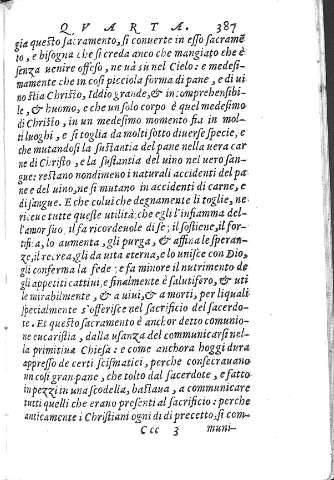 QVARTA. 387
gia questo sacramento, si conuerte in esso sacramẽ
to, e bisogna che si creda anco che mangiato che è
senza uenire offeso, ne uà sù nel Cielo: e medesi-
mamente che in cosi picciola forma di pane, e di ui
no stia Christo, Iddio grande, & incomprehensibi
le, & huomo, e che un solo corpo è quel medesimo
di Christo, in un medesimo momento sia in mol-
ti luoghi, e si toglia da molti sotto diuerse specie, e
che mutandosi la sustantia del pane nella uera car
ne di Christo, e la sustantia del uino nel uero san-
gue: restano nondimeno i naturali accidenti del pa
ne e del uino, ne si mutano in accidenti di carne, e
di sangue. E che colui che degnamente li toglie, ne
riceue tutte queste utilità: che egli l'infiamma del-
l'amor suo, il fa ricordeuole di se; il sostiene, il for-
tifica, lo aumenta, gli purga, & affina le speran-
ze, il recrea, gli da uita eterna, e lo unisce con Dio,
gli conferma la fede; e fa minore il nutrimento de
gli appetiti cattiui, e finalmente è salutifero, & uti
le mirabilmente, & a uiui, & a morti, per li quali
specialmente s'offerisce nel sacrificio del sacerdo-
te. Et questo sacramento è anchor detto comunio-
ne eucaristia, dalla usanza del communicarsi nel-
la primitiua Chiesa: e come anchora hoggi dura
appresso de certi scismatici, perche consecrauano
un cosi gran pane, che tolto dal sacerdote, e fatto
in pezzi in una scodella, bastaua, a communicare
tutti quelli che erano presenti al sacrificio: perche
anticamente i Christiani ogni dì di precetto, si com-
Ccc 3 muni-